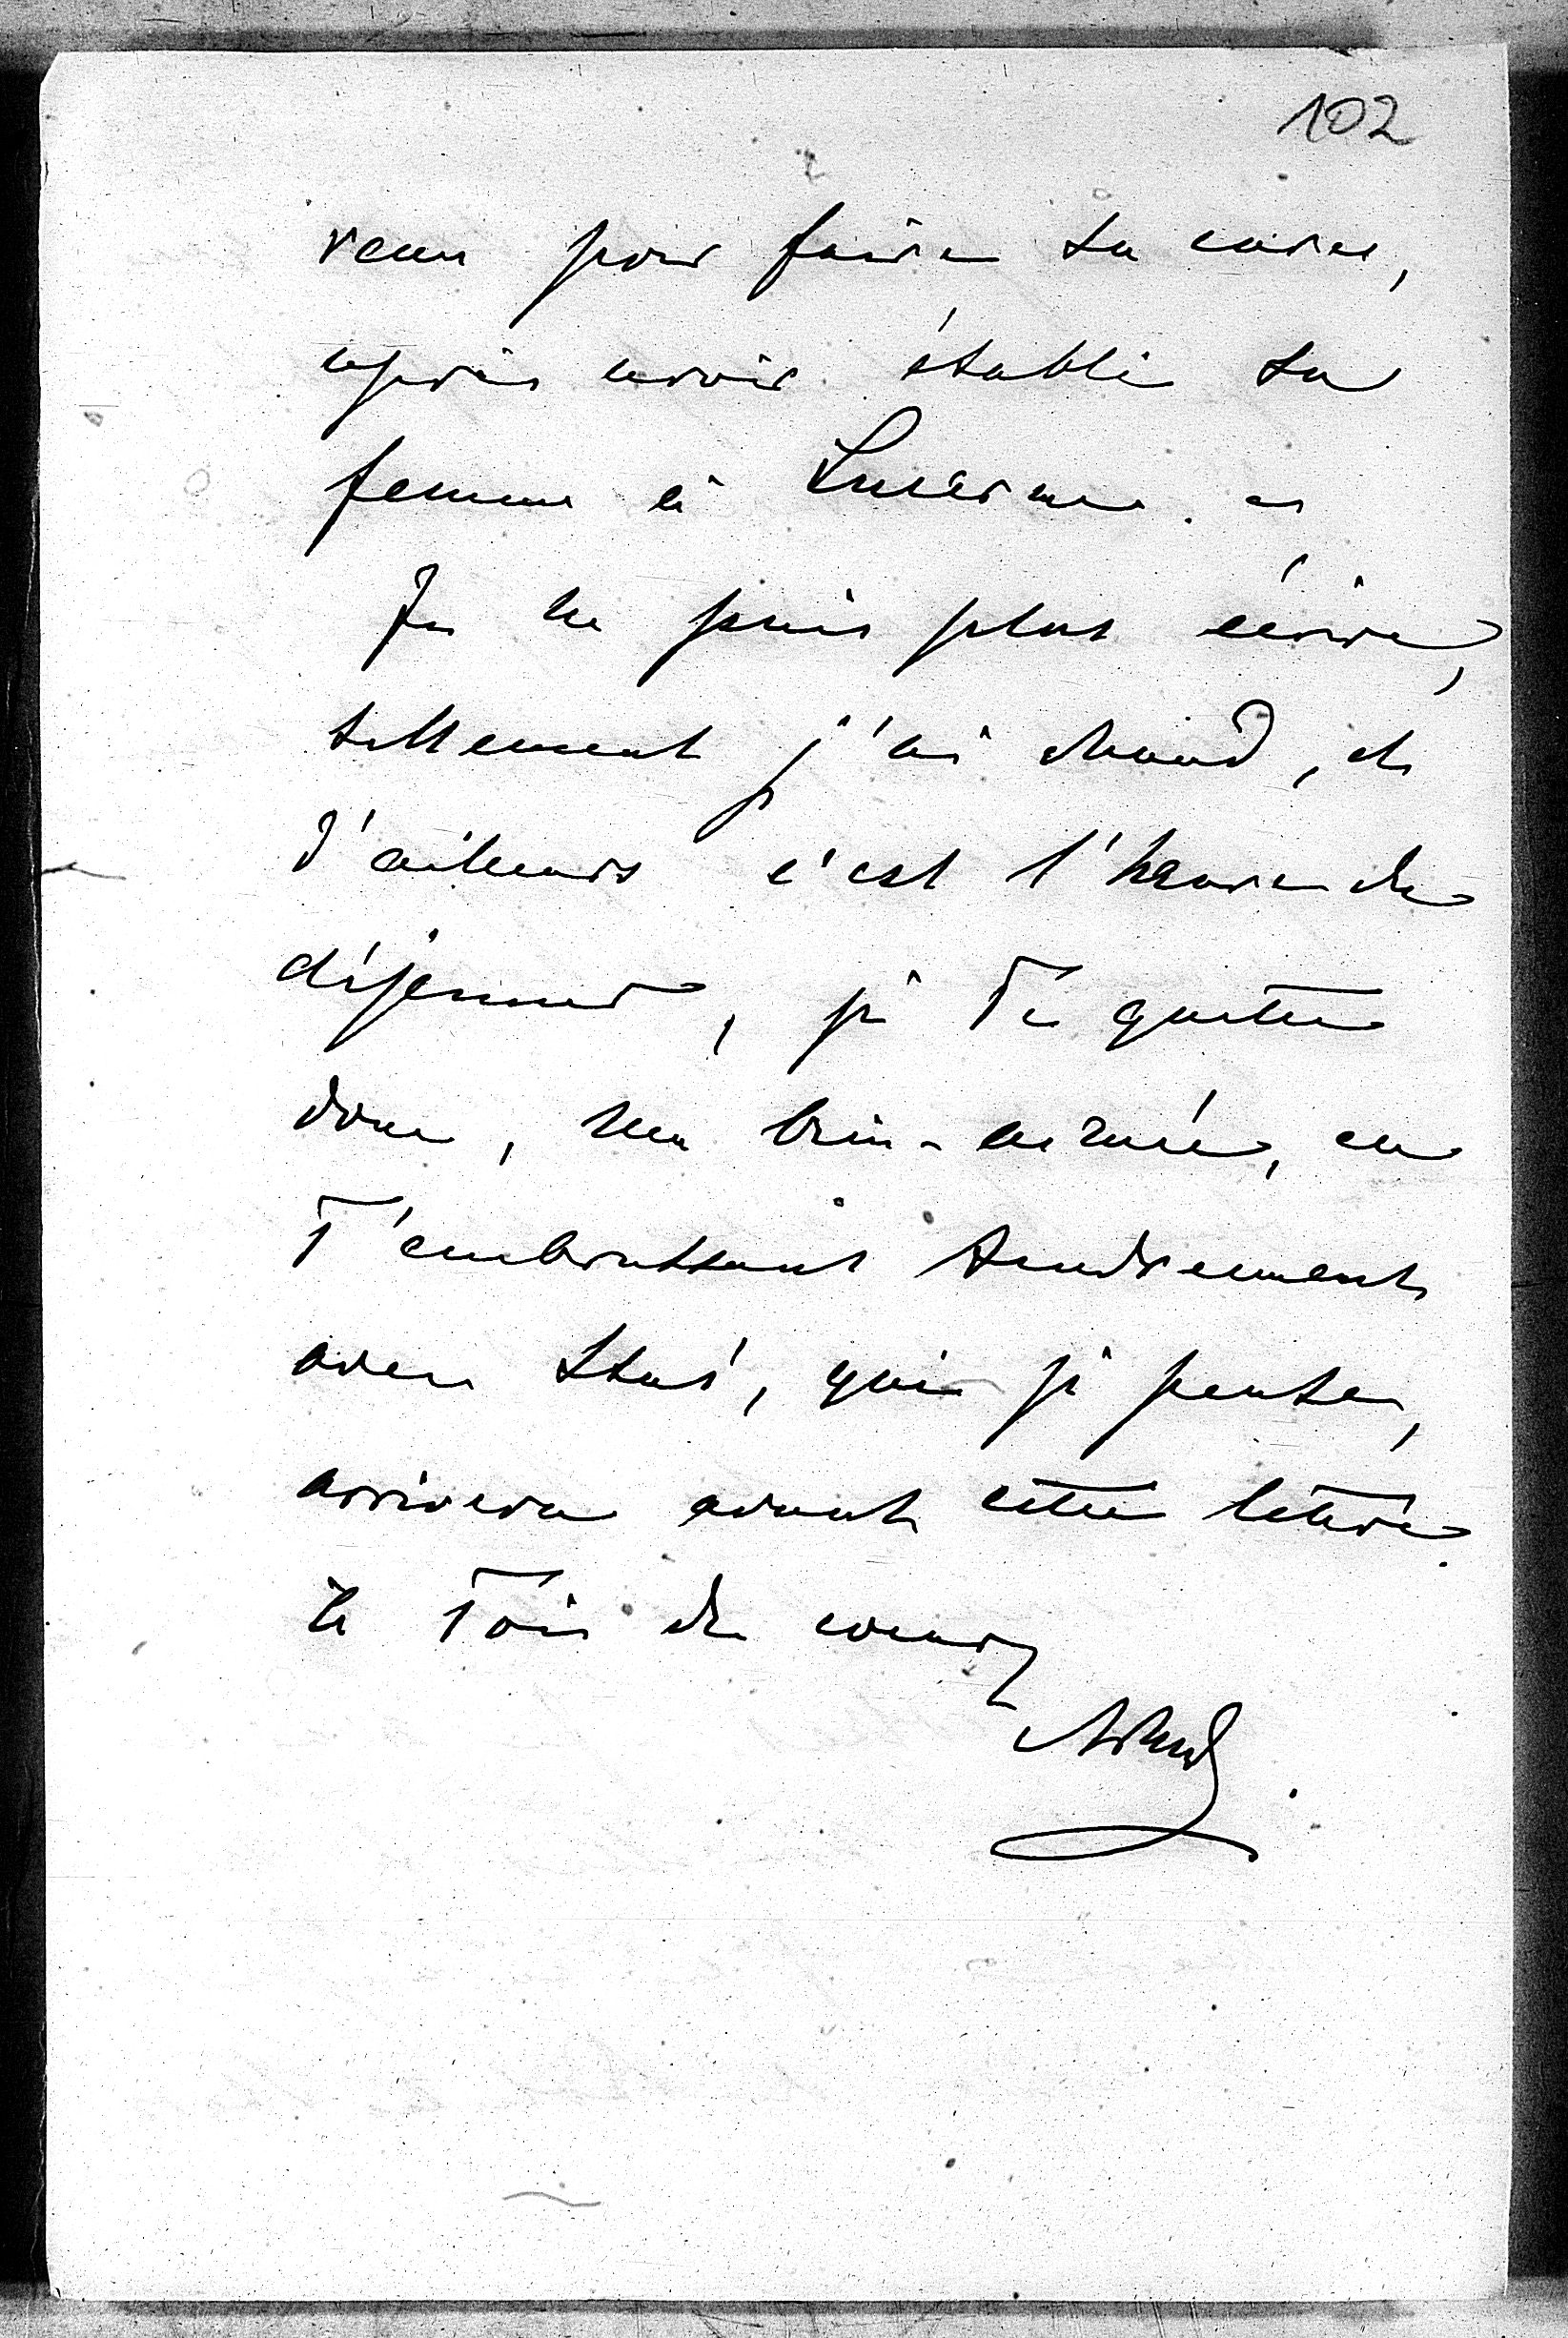 102
venu pour faire sa cure,
après avoir établi sa
femme à Lucerne. –
Je ne puis plus écrire,
tellement j'ai chaud, et
d'ailleurs c'est l'heure du
déjeuner, je Te quitte
donc, ma bien-aimée, en
T'embrassant tendrement
avec Stas', qui je pense,
arrivera avant cette lettre.
à Toi de cœur